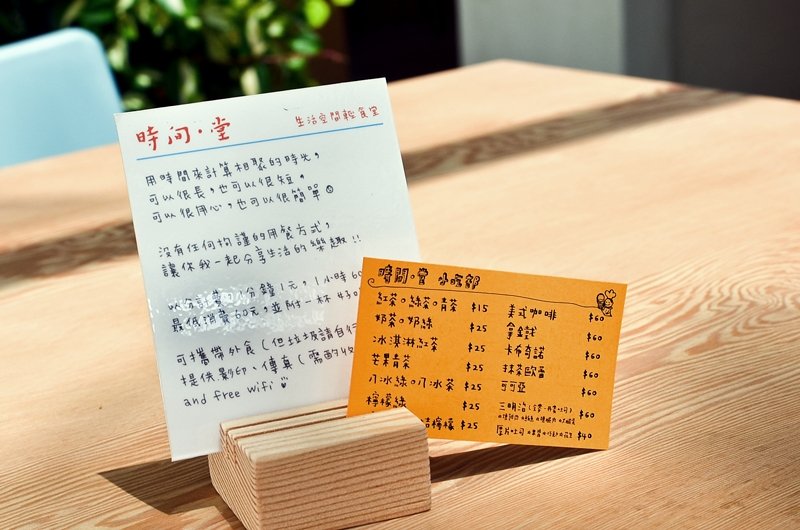 時间·堂
生活空間輕食室
用時間來計算相聚的時光,
可以很長,也可以很短,
可以很用心,也可以很簡單
沒有任何拘謹的用餐方式,
讓你我一起分享生活的樂趣!!
以分計費 一分鐘1元,1小時60
最低消費60元,並附一杯
可攜帶外食(但垃圾請自行
提供影印、傳真(需酌收
and free wifi
時間·堂 小吃部
紅茶。綠茶。青茶 $15
奶茶。奶綠 $25
冰淇淋紅茶 $25
芒果青茶 $25
八冰綠。八冰茶 $25
檸檬綠 $25
檸檬 $25
美式咖啡 $60
拿鐵 $60
卡布奇諾 $60
抹茶歐蕾 $60
可可亞 $60
三明治 $60
厚片吐司 $40